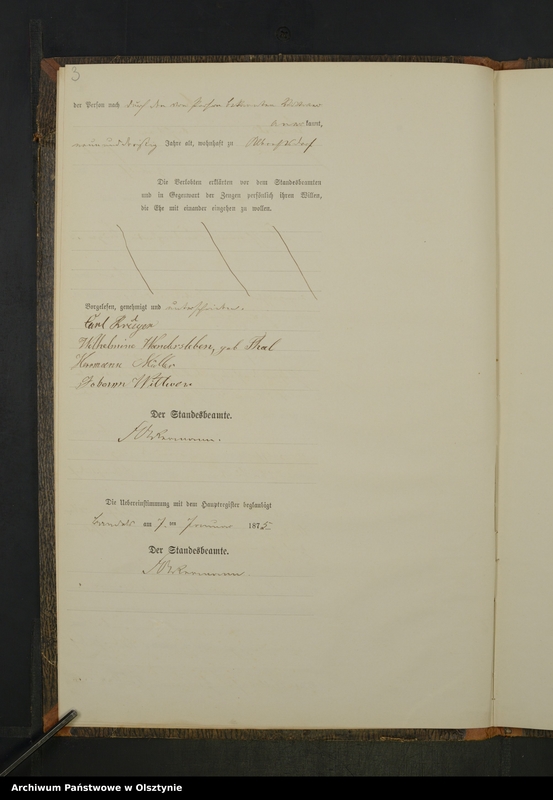 3
der Person nach durch den von Person bekannten
kannt,
neununddreißig Jahre alt, wohnhaft zu Albrechtsdorf
Die Verlobten erklärten vor dem Standesbeamten
und in Gegenwart der Zeugen persönlich ihren Willen,
die Ehe mit einander eingehen zu wollen.
Vorgelesen, genehmigt und unterschrieben.
Carl Krüger
Wilhelmine geb Thal
Hermann Müller
Johann Wittwer
Der Standesbeamte.
Die Uebereinstimmung mit dem Hauptregister beglaubigt
am 7. ten Januar 1875.
Der Standesbeamte.
Archiwum Państwowe w Olsztynie